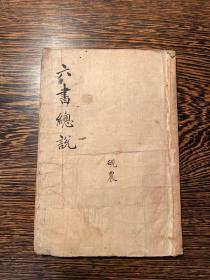 六書總說
硯農